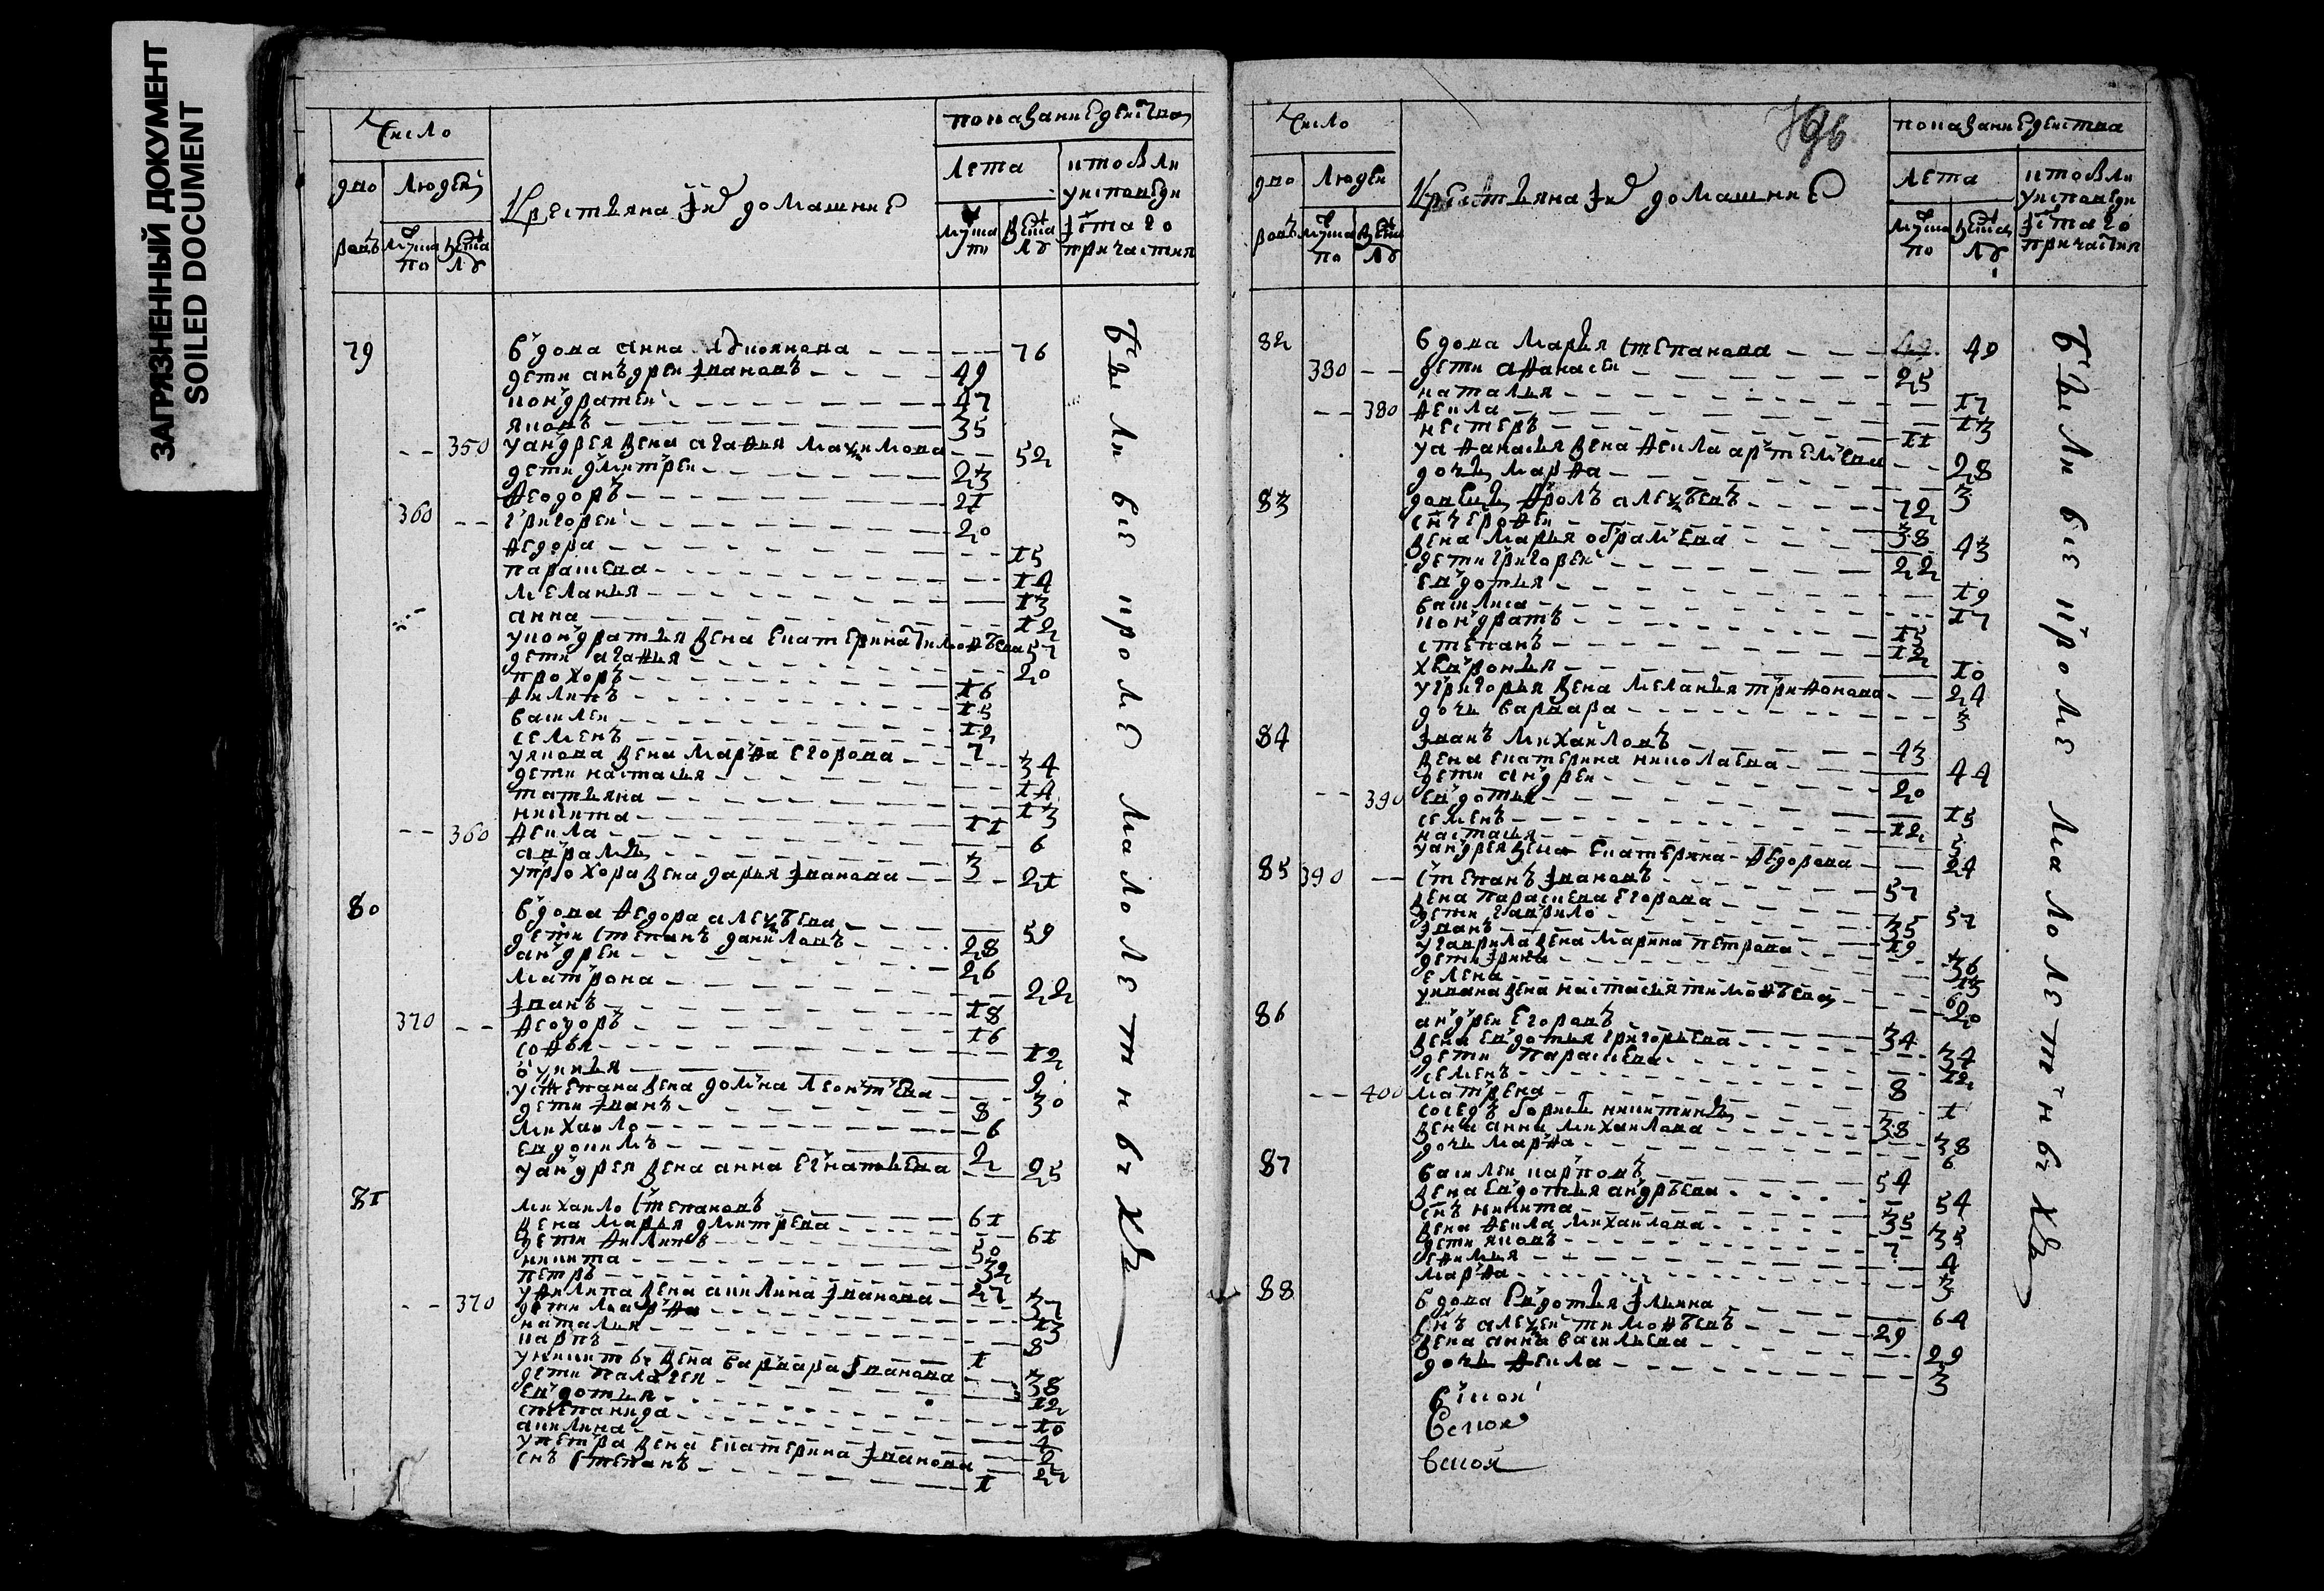 ЗАГРЯЗНЕННЫЙ ДОКУМЕНТ
SOILED DOCUMENT
Число
показание действа
дво
людей
Крестьяня и их домашние
лета
ровъ
мужска
женска
по
лъ
79 вдова анна 76
дети андрей Ивановъ 49
кондратей 47
яковъ 35
350 у андрея жена агафья максимова 52
дети дмитрей 23
феодоръ 21
360 григорей 20
федора 15
парасковa 14
меланья 13
анна 12
у кондратья жена екатерина тимофѣева 57
дети агафья 20
прохоръ 16
филипъ 15
василей 12
семенъ 7
у якова жена марфа егорова 34
дети настасья 14
татьяна 13
никита 11
360 фекла 6
авраамъ 3
у прохора жена дарья Иванова 21
80 вдова федора алексѣева 59
дети степанъ даниловъ 28
андрей 26
матрона 22
Иванъ 18
370 феодоръ 16
софья 12
9
у степана жена домна леонтьева 30
дети Иванъ 8
михаило 6
евдокимъ 2
у андрея жена анна егнатьева 25
81 михаило степановъ 61
жена марья дмитрева 61
дети филипъ 50
никита 32
петръ 27
у филипа жена акилина Иванова 37
370 дети марфа 13
наталья 8
карпъ 1
у никиты жена варвара Иванова 38
дети палагея 12
евдотья 10
степанида
акилина 2
у петра жена екатерина Иванова 22
снъ степанъ 1
были все кроме малолетных
796
Число
показание действа
дво
людей
Крестьяня и их домашние
лета
ровъ
мужска
женска
по
лъ
82 вдова марья степанова 49
380 дети афанасей 25
наталья 17
380 фекла 13
нестеръ 11
у афанасья жена фекла артемьева 28
дочь марфа 3
83 вдовецъ фролъ алексѣевъ 72
снъ ерофей 38
жена марья обрамева 43
дети григорей 22
евдотья 19
василиса 17
кондратъ 15
степанъ 12
хевронья 10
у григорья жена меланья трифонова 24
дочь варвара 3
84 Иванъ михайловъ 43
жена екатерина николаева 44
дети андрей 20
390 евдотья 15
семенъ 12
настасья 5
у андрея жена екатерина федорова 24
85 390 степанъ Ивановъ 57
жена параскева егорова 57
дети гаврило 35
Иванъ 19
у гаврила жена марина петрова 36
дети Ирина 13
елена 6
у ивана жена настасья тимофѣева 20
86 андрей егоровъ 34
жена евдотья григорьева 34
дети парасkева 12
семенъ 8
400 матрена 1
соседъ борисъ никитинъ 38
жена анна михаилова 38
дочь марфа 6
87 василей карповъ 54
жена евдотья андрѣева 54
снъ никита 35
жена фекла михаилова 35
дети яковъ 7
ефимья 4
марфа 3
88 вдова евдотья Ильина 64
снъ алексей тимофѣевъ 29
жена анна васильева 29
дочь фекла 3
были все кроме малолетных